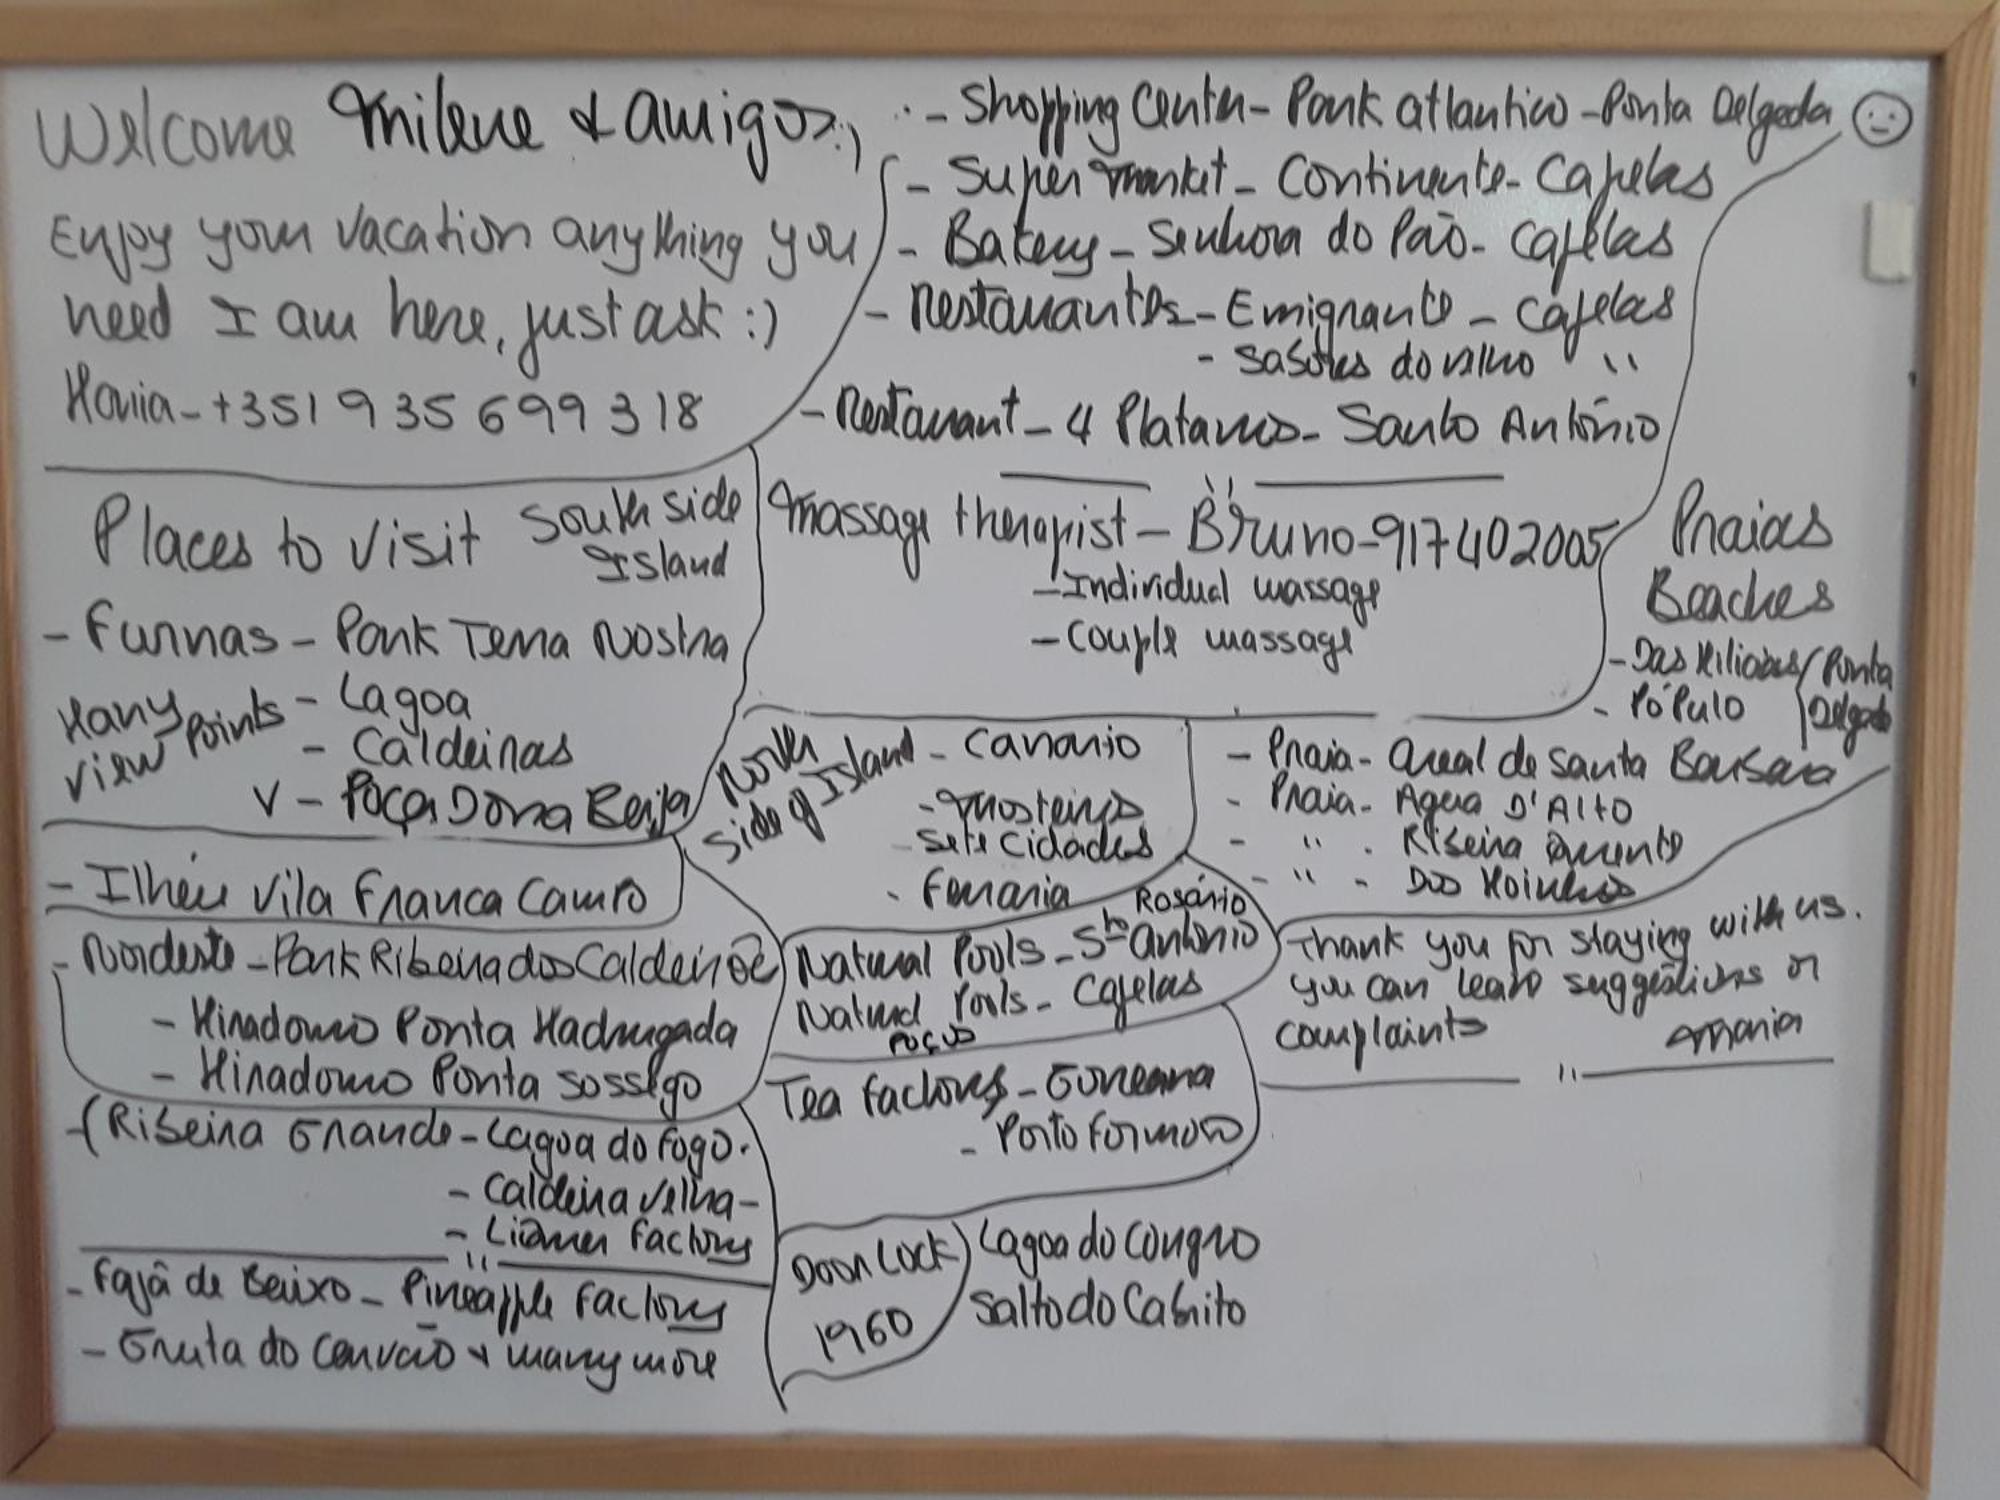 Welcome Milene & amigos :)
Enjoy your vacation anything you
need I am here, just ask :)
Maria - +351 935 699 318
- Shopping Center - Park atlantico - Ponta Delgada
- Super market - Continente - Capelas
- Bakery - Senhora do Pão - Capelas
- Restaurantes - Emigrante - Capelas
- Sabores do velho "
- Restaurant - 4 Platanos - Santo António
Massage therapist - Bruno - 917402005
- Individual massage
- Couple massage
Places to visit South side
Island
- Furnas - Park Terra Nostra
Many view points
- Lagoa
- Caldeiras
V - Poça Dona Beija
- Ilhéu Vila Franca Campo
- Nordeste - Park Ribeira dos Caldeirões
- Miradouro Ponta Madrugada
- Miradouro Ponta Sossego
- (Ribeira Grande - Lagoa do Fogo.
- Caldeira Velha -
- Liquer Factory
- Fajã de Baixo - Pineapple Factory
- Gruta do Carvão & many more
North side of Island - Canario
- Mosteiros
Sete Cidades
- Ferraria
Rosário
Natural Pools - Sto António
Natural Pools - Capelas
Poços
Tea Factory - Gorreana
- Porto Formoso
Door Lock
1960
Lagoa do Congro
Salto do Cabrito
Praias
Beaches
- Das Milicias / Ponta
- Pópulo Delgada
- Praia - Areal de Santa Barbara
- Praia - Agua D'Alto
- " - Ribeira Quente
- " - Dos Moinhos
Thank you for staying with us.
you can leave suggestions or
complaints Maria